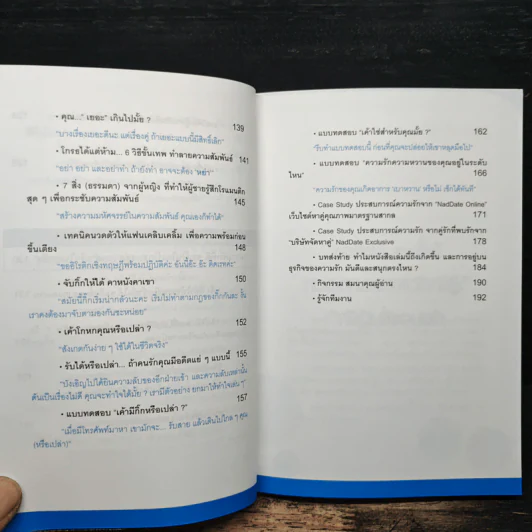 • คุณ..." เยอะ" เกินไปมั้ย ?
139
"บางเรื่องเยอะดีนะ แต่เรื่องคู่ ถ้าเยอะแบบนี้มีสิทธิ์เลิก"
• โกรธได้แต่ห้าม... 6 วิธีขั้นเทพ ทำลายความสัมพันธ์ 141
"อย่า อย่า และอย่าทำ ถ้ายังทำ อาจจะต้อง 'หย่า'"
• 7 สิ่ง (ธรรมดา) จากผู้หญิง ที่ทำให้ผู้ชายรู้สึกโรแมนติก
สุด ๆ เพื่อกระชับความสัมพันธ์ 145
"สร้างความมหัศจรรย์ในความสัมพันธ์ คุณเองก็ทำได้"
• เทคนิคนวดตัวให้แฟนเคลิบเคลิ้ม เพื่อความพร้อมก่อน
ขึ้นเตียง 148
"ขออิโรติกเชิงทฤษฎีพร้อมปฏิบัติค่ะ อันนี้อ๊ะ อ๊ะ ติดเรทค่ะ"
• จับกิ๊กให้ได้ คาหนังคาเขา 150
"สมัยนี้กิ๊กเริ่มน่ากลัวนะคะ เริ่มไม่ทำตามกฎของกิ๊กกันละ งั้น
เราคงต้องมาจับตามองกันซะหน่อย"
• เค้าโกหกคุณหรือเปล่า ? 152
"สังเกตกันง่าย ๆ ใช้ได้ในชีวิตจริง"
• รับได้หรือเปล่า... ถ้าคนรักคุณมีอดีตแย่ ๆ แบบนี้ 155
"บังเอิญไปได้ยินความลับของอีกฝ่ายเข้า และความลับเหล่านั้น
ดันเป็นเรื่องไม่ดี คุณจะทำใจได้มั้ย ? เรามีตัวอย่าง ยกมาให้ทำใจเล่น ๆ"
• แบบทดสอบ "เค้ามีกิ๊กหรือเปล่า ?" 157
"เมื่อมีโทรศัพท์มาหา เขามักจะ... รับสาย แล้วเดินไปไกล ๆ คุณ
(หรือเปล่า)"
• แบบทดสอบ "เค้าใช่สำหรับคุณมั้ย ?" 162
"รีบทำแบบทดสอบนี้ ก่อนที่คุณจะปล่อยให้เขาหลุดมือไป"
• แบบทดสอบ "ความรักความหวานของคุณอยู่ในระดับ
ไหน" 166
"ความรักของคุณเกิดอาการ 'เบาหวาน' หรือไม่ เช็กได้ทันที"
• Case Study ประสบการณ์ความรักจาก "NadDate Online"
เว็บไซต์หาคู่คุณภาพมาตรฐานสากล 171
• Case Study ประสบการณ์ความรัก จากคู่รักที่พบรักจาก
"บริษัทจัดหาคู่" NadDate Exclusive 178
• บทส่งท้าย ทำไมหนังสือเล่มนี้ถึงเกิดขึ้น และการอยู่บน
ธุรกิจของความรัก มันดีและสนุกตรงไหน ? 184
• กิจกรรม สมนาคุณผู้อ่าน 190
• รู้จักทีมงาน 192